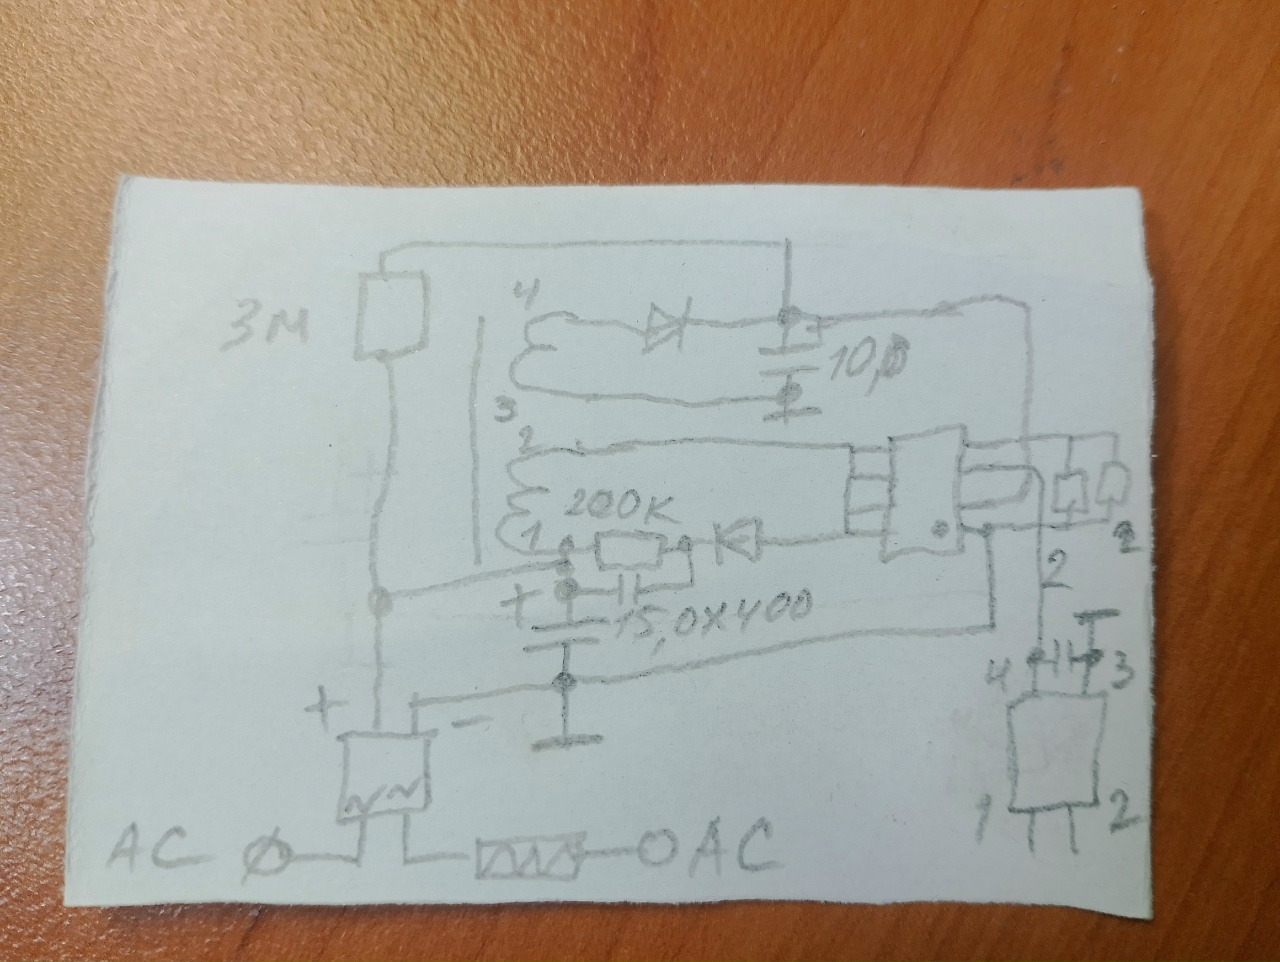 4
3М
10,0
3
2
200К
1
+
2
2
15,0X400
4
3
+
−
1
2
AC
AC